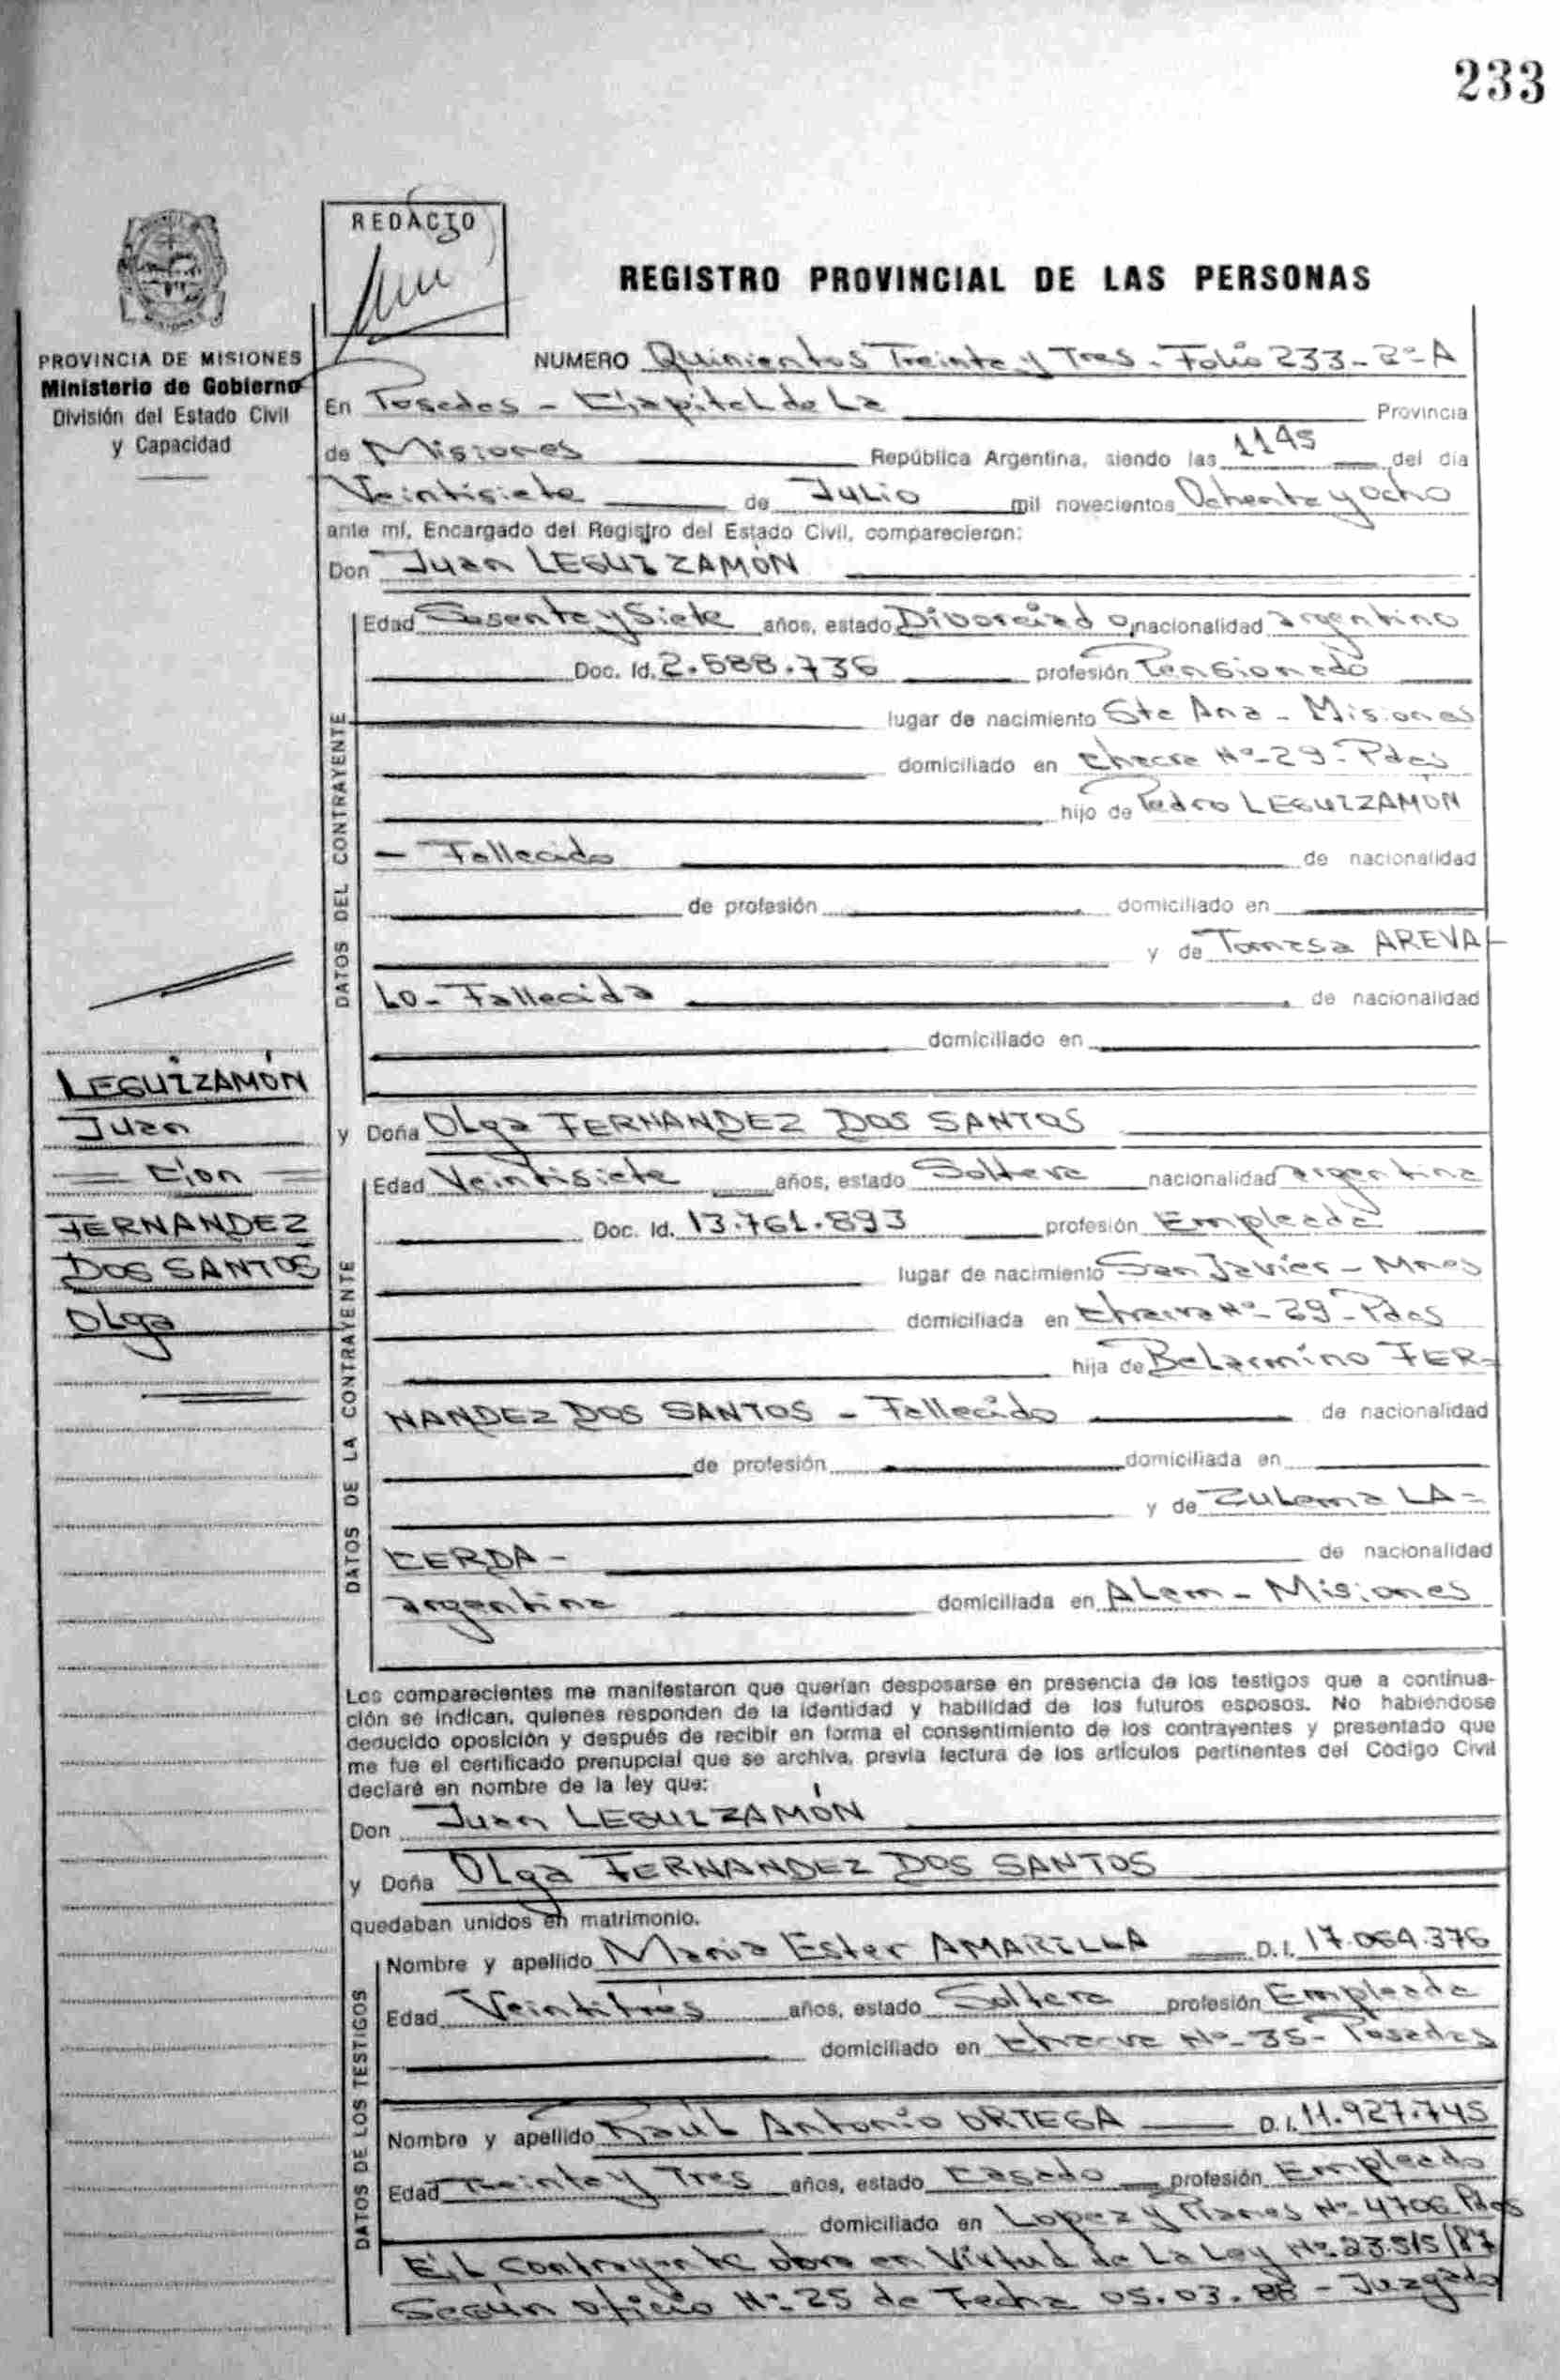 233
REDACTO
REGISTRO PROVINCIAL DE LAS PERSONAS
PROVINCIA DE MISIONES
Ministerio de Gobierno
División del Estado Civil
y Capacidad
NUMERO Quinientos Treinta y Tres - Folio 233 - 2º A
En Posadas - Capital de La Provincia
de Misiones República Argentina, siendo las 1145 del día
Veintisiete de Julio mil novecientos Ochenta y ocho
ante mí, Encargado del Registro del Estado Civil, comparecieron:
Don Juan LEGUIZAMÓN
DATOS DEL CONTRAYENTE
Edad Sesenta y Siete años, estado Divorciado nacionalidad argentino
Doc. Id. 2.588.736 profesión Pensionado
lugar de nacimiento Sta Ana - Misiones
domiciliado en Chacra Nº 29 - Pdas
hijo de Pedro LEGUIZAMÓN
- Fallecido de nacionalidad
de profesión domiciliado en
y de Tomasa AREVA-
LO - Fallecida de nacionalidad
domiciliado en
LEGUIZAMÓN
Juan
= Con =
FERNANDEZ
DOS SANTOS
Olga
y Doña Olga FERNANDEZ DOS SANTOS
DATOS DE LA CONTRAYENTE
Edad Veintisiete años, estado Soltera nacionalidad argentina
Doc. Id. 13.761.893 profesión Empleada
lugar de nacimiento San Javier - Mnes
domiciliada en Chacra Nº 29 - Pdas
hija de Belarmino FER-
NANDEZ DOS SANTOS - Fallecido de nacionalidad
de profesión domiciliada en
y de Zulema LA-
CERDA - de nacionalidad
argentina domiciliada en Alem - Misiones
Los comparecientes me manifestaron que querían desposarse en presencia de los testigos que a continua-
ción se indican, quienes responden de la identidad y habilidad de los futuros esposos. No habiéndose
deducido oposición y después de recibir en forma el consentimiento de los contrayentes y presentado que
me fue el certificado prenupcial que se archiva, previa lectura de los artículos pertinentes del Código Civil
declaré en nombre de la ley que:
Don Juan LEGUIZAMÓN
y Doña Olga FERNANDEZ DOS SANTOS
quedaban unidos en matrimonio.
DATOS DE LOS TESTIGOS
Nombre y apellido Maria Ester AMARILLA D.I. 17.064.376
Edad Veintitrés años, estado Soltera profesión Empleada
domiciliado en Chacra Nº 35 - Posadas
Nombre y apellido Raúl Antonio ORTEGA D.I. 11.927.745
Edad Treinta y Tres años, estado Casado profesión Empleado
domiciliado en Lopez y Planes Nº 4706 Pdas
El contrayente obra en Virtud de La Ley Nº 23.515/87
Según oficio Nº 25 de Fecha 05.03.88 - Juzgado